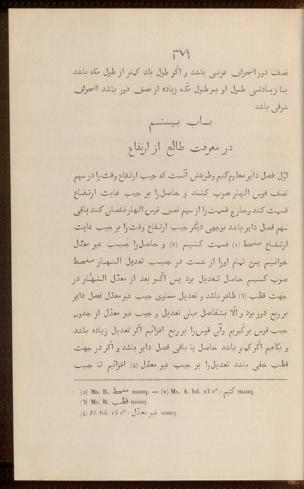 ٣٧٩
نصف دور انحراف غربی باشد و اگر طول بلد کمتر از طول مکه باشد
یا زیادتی طول او بر طول مکه زیاده از نصف دور باشد انحراف
شرقی باشد
باب بیستم
در معرفت طالع از ارتفاع
اوّل فضل دایر معلوم کنیم وطریقش آنست که جیب ارتفاع وقترا در سهم
نصف قوس النهار ضرب کنند و حاصلرا بر جیب غایت ارتفاع
قسمت کنند وخارج قسمترا از سهم نصف قوس النهار نقصان کنند باقی
سهم فضل دایر باشد بوجهی دیگر جیب ارتفاع وقترا بر جیب غایت
ارتفاع منحط (1) قسمت کنیم (2) و حاصلرا جیب غیر معدّل
خوانیم پس تمام اورا از شست در جیب تعدیل النهار منحط
ضرب کنیم حاصل تعدیل بود پس اگر بعد از معدّل النهار در
جهت قطب (3) ظاهر باشد و تعدیل مساوی جیب غیر معدّل فضل دایر
بر ربع دور بود و الّا بتفاضل میان تعدیل و جیب غیر معدّل از جدول
جیب قوس بر گیریم وآن قوسرا بر ربع افزائیم اگر تعدیل زیاده باشد
و بکاهیم اگر کمتر باشد حاصل یا باقی فضل دایر باشد و اگر در جهت
قطب خفی باشد تعدیلرا بر جیب غیر معدّل (4) افزائیم تا جیب
(1) Ms. B. منحط manq. — (2) Ms. A. fol. 23 v°: کنیم manq.
(3) Ms. B. قطب manq.
(4) Id. fol. 15 v°: غیر معدّل manq.